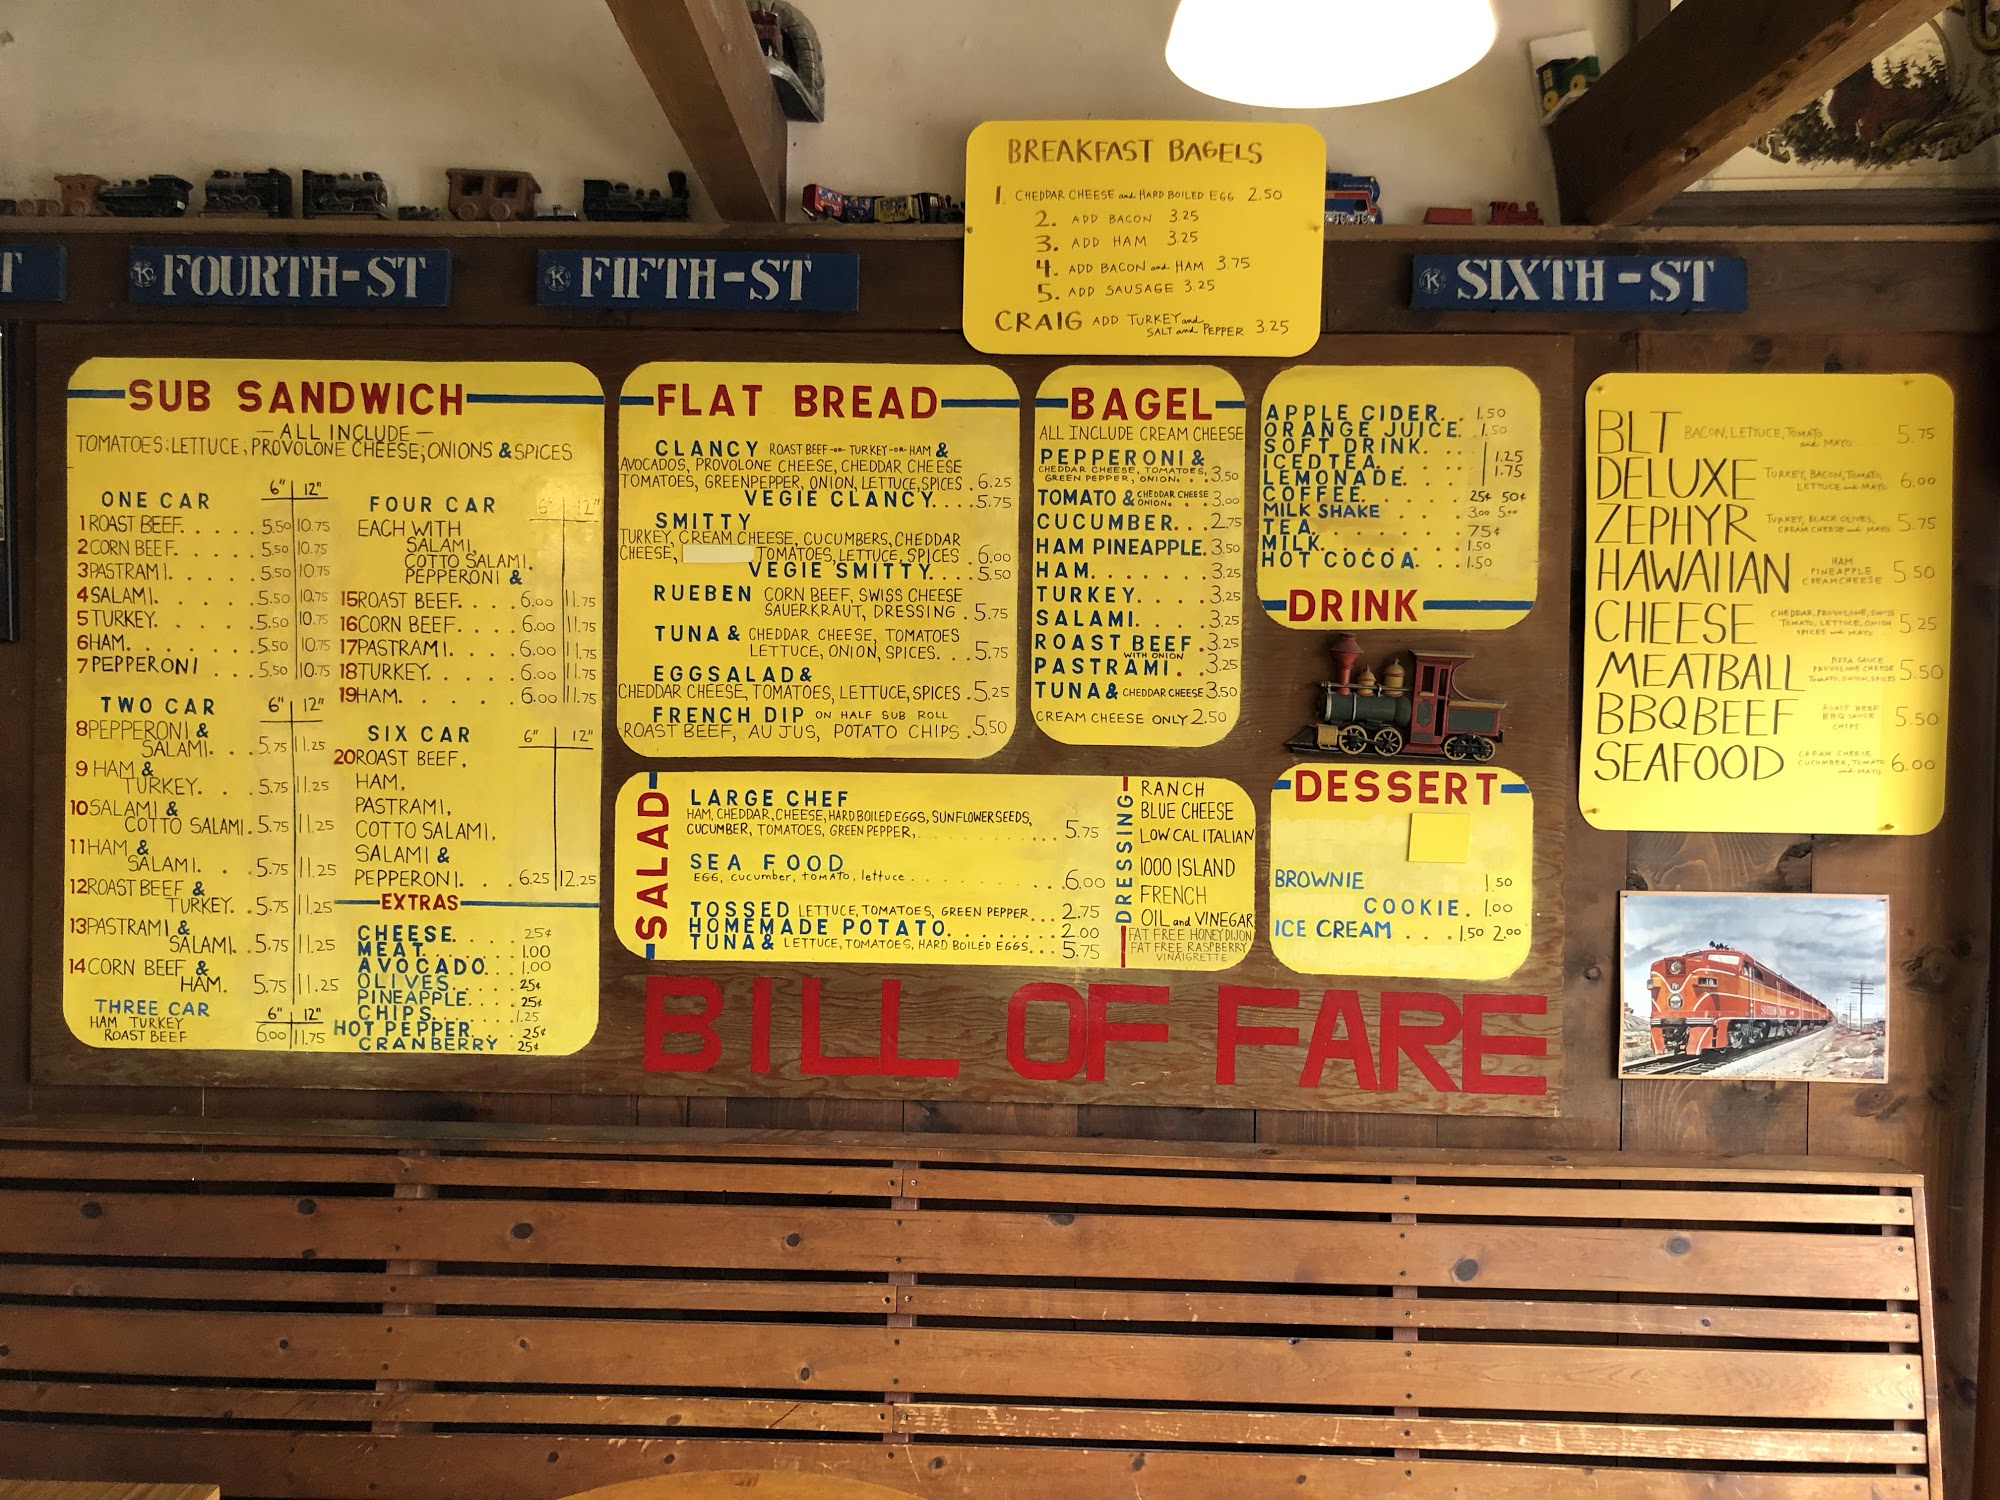 BREAKFAST BAGELS
1. CHEDDAR CHEESE and HARD BOILED EGG 2.50
2. ADD BACON 3.25
3. ADD HAM 3.25
4. ADD BACON and HAM 3.75
5. ADD SAUSAGE 3.25
CRAIG ADD TURKEY and
SALT and PEPPER 3.25
T
K FOURTH-ST
K FIFTH-ST
K SIXTH-ST
SUB SANDWICH
—ALL INCLUDE—
TOMATOES; LETTUCE; PROVOLONE CHEESE; ONIONS & SPICES
ONE CAR 6" 12"
1 ROAST BEEF. . . . . 5.50 10.75
2 CORN BEEF. . . . . 5.50 10.75
3 PASTRAMI. . . . . . 5.50 10.75
4 SALAMI. . . . . . 5.50 10.75
5 TURKEY. . . . . . 5.50 10.75
6 HAM. . . . . . . 5.50 10.75
7 PEPPERONI . . . . 5.50 10.75
TWO CAR 6" 12"
8 PEPPERONI &
SALAMI. . . 5.75 11.25
9 HAM &
TURKEY. . . 5.75 11.25
10 SALAMI &
COTTO SALAMI. 5.75 11.25
11 HAM &
SALAMI. . . 5.75 11.25
12 ROAST BEEF &
TURKEY. . 5.75 11.25
13 PASTRAMI &
SALAMI. . 5.75 11.25
14 CORN BEEF &
HAM. 5.75 11.25
THREE CAR 6" 12"
HAM TURKEY
ROAST BEEF 6.00 11.75
FOUR CAR 6" 12"
EACH WITH
SALAMI,
COTTO SALAMI,
PEPPERONI &
15 ROAST BEEF. . . . 6.00 11.75
16 CORN BEEF. . . . 6.00 11.75
17 PASTRAMI. . . . . 6.00 11.75
18 TURKEY. . . . . . 6.00 11.75
19 HAM. . . . . . . 6.00 11.75
SIX CAR 6" 12"
20 ROAST BEEF,
HAM,
PASTRAMI,
COTTO SALAMI,
SALAMI &
PEPPERONI. . . 6.25 12.25
EXTRAS
CHEESE. . . . 25¢
MEAT. . . . . 1.00
AVOCADO. . . 1.00
OLIVES. . . . 25¢
PINEAPPLE. . . . 25¢
CHIPS. . . . . 1.25
HOT PEPPER. . . 25¢
CRANBERRY 25¢
FLAT BREAD
CLANCY ROAST BEEF -or- TURKEY -or- HAM &
AVOCADOS, PROVOLONE CHEESE, CHEDDAR CHEESE
TOMATOES, GREENPEPPER, ONION, LETTUCE, SPICES . 6.25
VEGIE CLANCY. . . 5.75
SMITTY
TURKEY, CREAM CHEESE, CUCUMBERS, CHEDDAR
CHEESE, TOMATOES, LETTUCE, SPICES . 6.00
VEGIE SMITTY. . . . 5.50
RUEBEN CORN BEEF, SWISS CHEESE
SAUERKRAUT, DRESSING . 5.75
TUNA & CHEDDAR CHEESE, TOMATOES
LETTUCE, ONION, SPICES. . . 5.75
EGGSALAD &
CHEDDAR CHEESE, TOMATOES, LETTUCE, SPICES . 5.25
FRENCH DIP ON HALF SUB ROLL
ROAST BEEF, AU JUS, POTATO CHIPS . 5.50
BAGEL
ALL INCLUDE CREAM CHEESE
PEPPERONI &
CHEDDAR CHEESE, TOMATOES,
GREEN PEPPER, ONION. . . 3.50
TOMATO & CHEDDAR CHEESE
ONION. . . 3.00
CUCUMBER. . . 2.75
HAM PINEAPPLE. 3.50
HAM. . . . . . . 3.25
TURKEY. . . . . 3.25
SALAMI. . . . . 3.25
ROAST BEEF . 3.25
WITH ONION
PASTRAMI . . 3.25
TUNA & CHEDDAR CHEESE 3.50
CREAM CHEESE ONLY 2.50
APPLE CIDER. . . 1.50
ORANGE JUICE. . 1.50
SOFT DRINK. . .
ICED TEA. . . . 1.25
LEMONADE. . . . 1.75
COFFEE. . . . . 25¢ 50¢
MILK SHAKE 3.00 5.00
TEA. . . . . . 75¢
MILK. . . . . . 1.50
HOT COCOA. . . 1.50
DRINK
SALAD
LARGE CHEF
HAM, CHEDDAR, CHEESE, HARD BOILED EGGS, SUNFLOWER SEEDS,
CUCUMBER, TOMATOES, GREEN PEPPER, . . . . . 5.75
SEA FOOD
EGG, cucumber, tomato, lettuce . . . . . . 6.00
TOSSED LETTUCE, TOMATOES, GREEN PEPPER. . . 2.75
HOMEMADE POTATO. . . . . . 2.00
TUNA & LETTUCE, TOMATOES, HARD BOILED EGGS. . . . 5.75
DRESSING
RANCH
BLUE CHEESE
LOW CAL ITALIAN
1000 ISLAND
FRENCH
OIL and VINEGAR
FAT FREE HONEY DIJON
FAT FREE RASPBERRY
VINAIGRETTE
DESSERT
BROWNIE 1.50
COOKIE. 1.00
ICE CREAM . . . 1.50 2.00
BLT BACON, LETTUCE, TOMATO
and MAYO 5.75
DELUXE TURKEY, BACON, TOMATO
LETTUCE and MAYO 6.00
ZEPHYR TURKEY, BLACK OLIVES,
CREAM CHEESE and MAYO 5.75
HAWAIIAN HAM
PINEAPPLE
CREAM CHEESE 5.50
CHEESE CHEDDAR, PROVOLONE, SWISS
TOMATO, LETTUCE, ONION
SPICES and MAYO 5.25
MEATBALL PIZZA SAUCE
PROVOLONE CHEESE
TOMATO, ONION, SPICES 5.50
BBQ BEEF ROAST BEEF
BBQ SAUCE
CHIPS 5.50
SEAFOOD CREAM CHEESE
CUCUMBER, TOMATO
and MAYO 6.00
BILL OF FARE